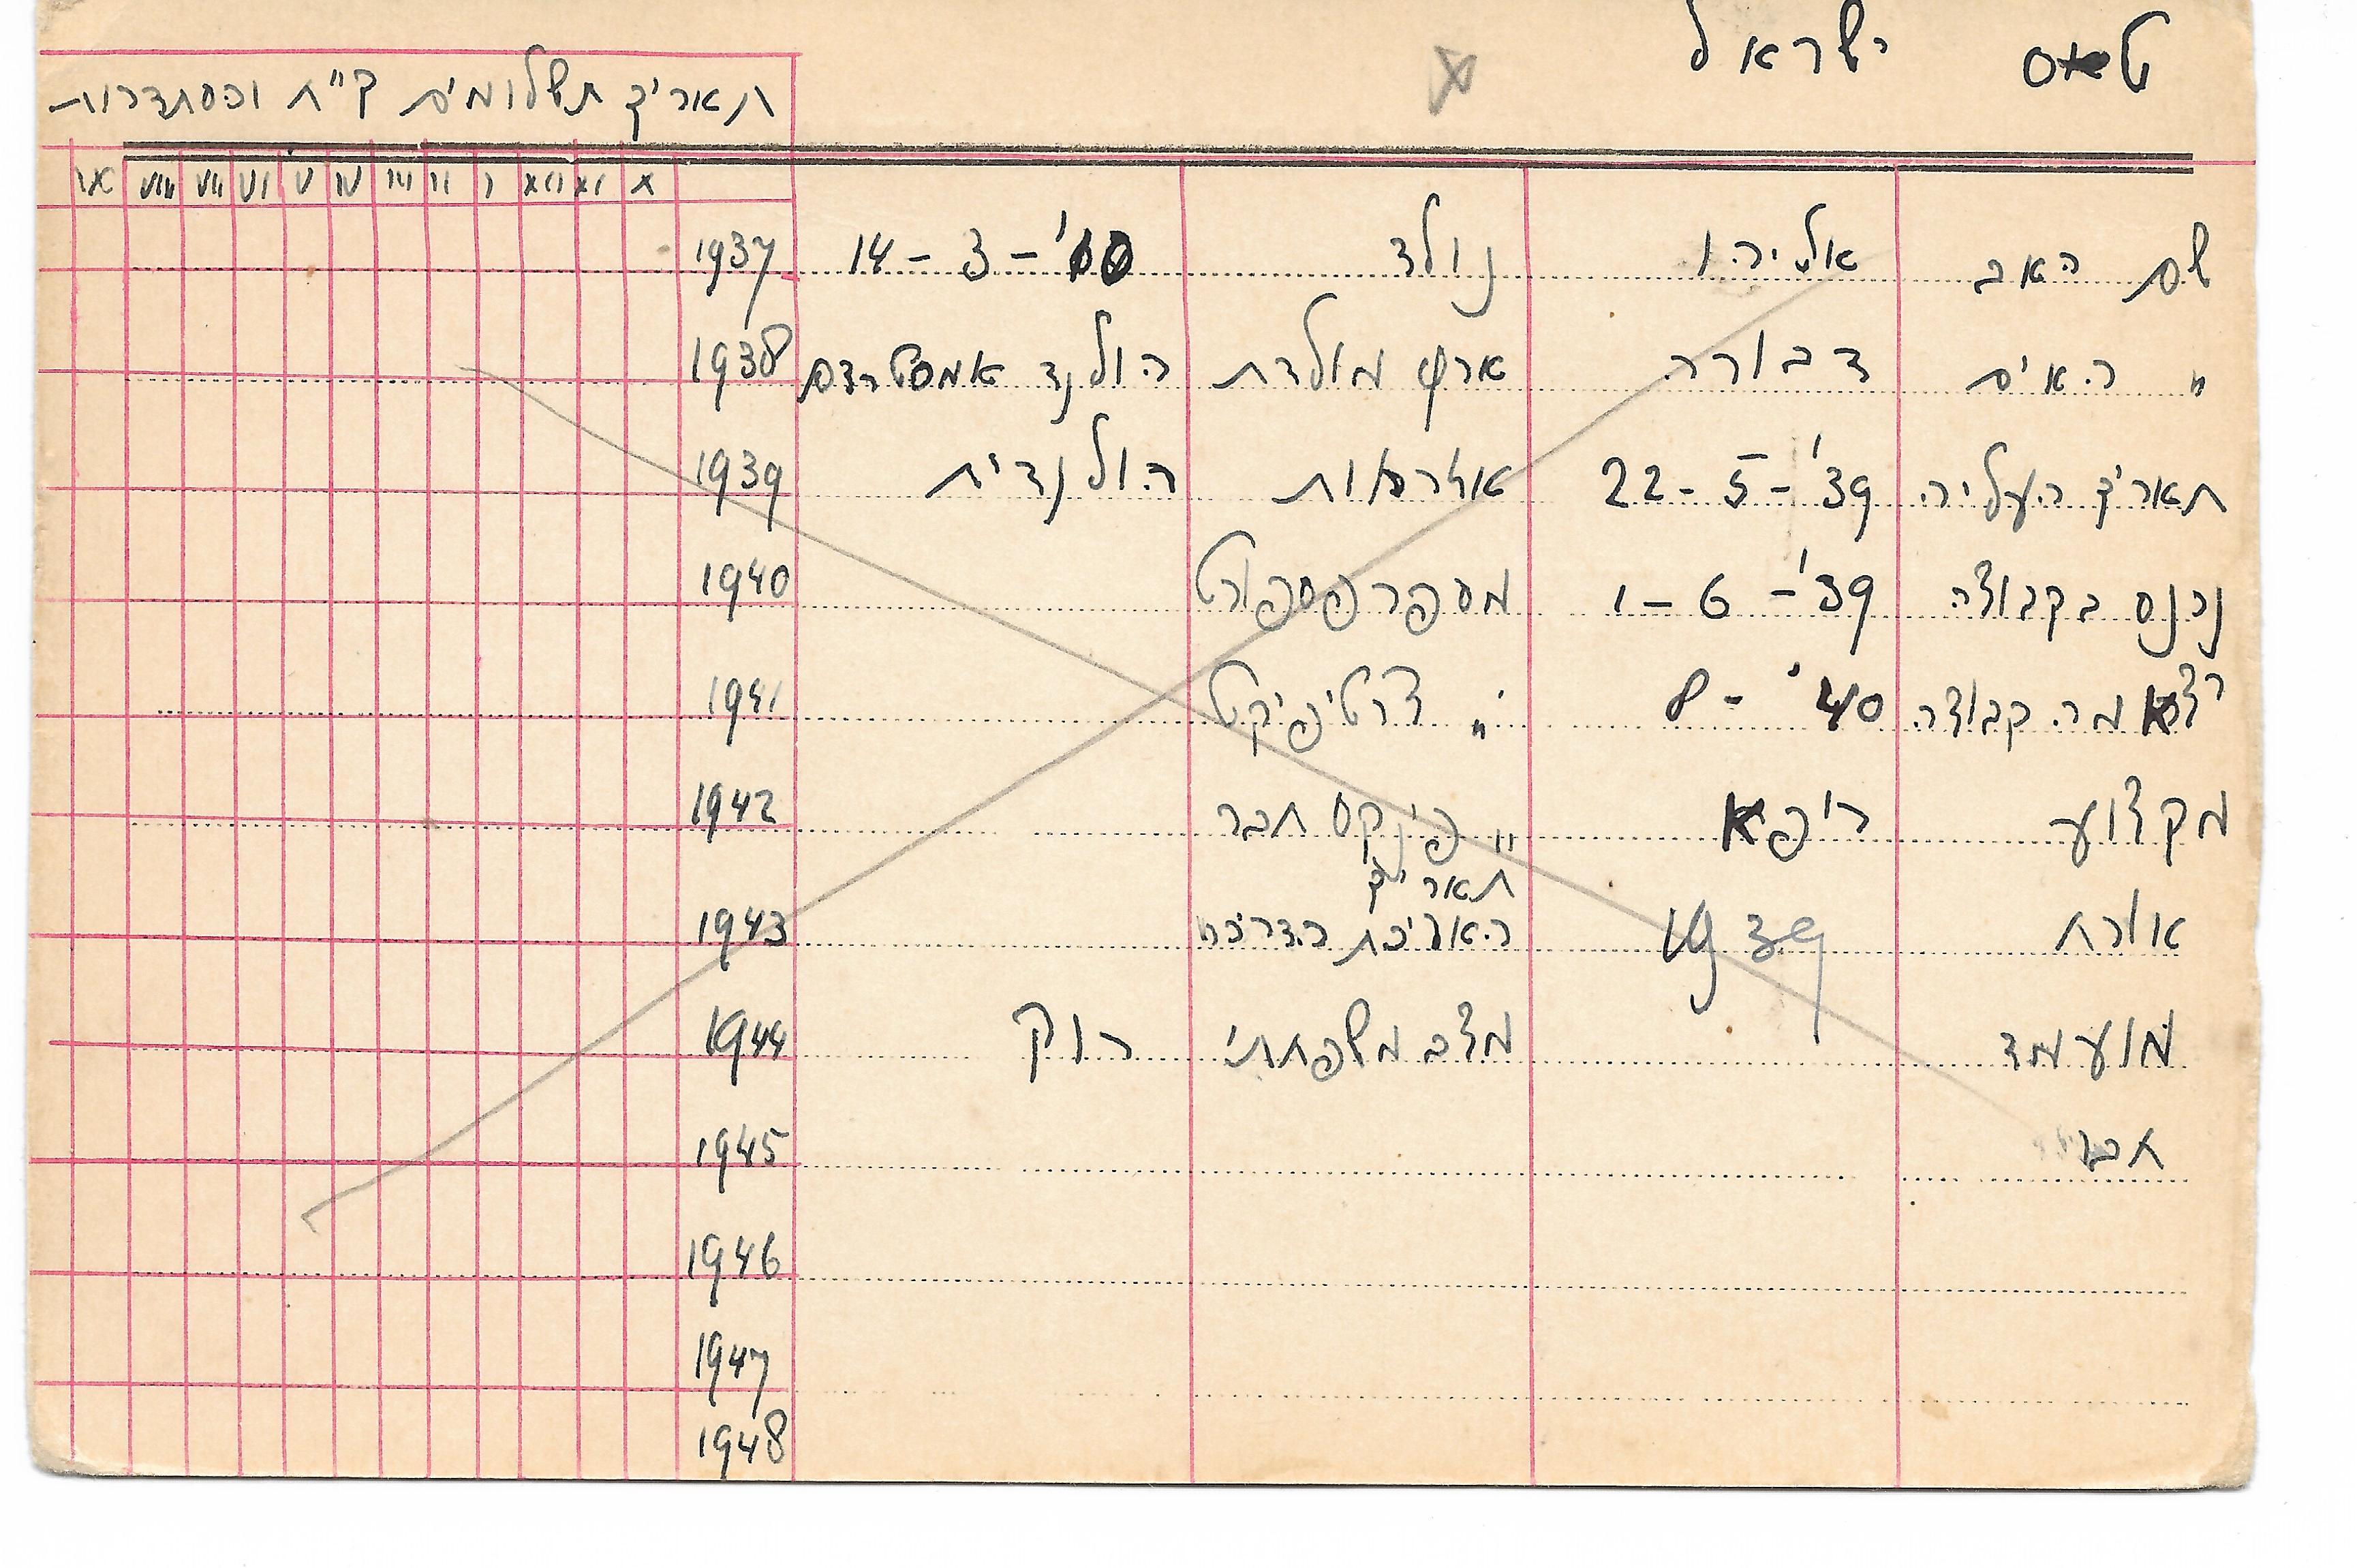 ט ס ישראל
תאריך תשלומים ק"ח והסתדרות
X XI XII I II III IV V VI VII VIII IX
שם האב אליהו נולד 14 - 3 - 1937
" האים דבורה ארץ מולדת הולנד אמסטרדם 1938
תאריך העליה 22 - 5 - '39 אזרחות הולנדית 1939
נכנס בקבוצה 1 - 6 - '39 מספר פספורט 1940
יצא מה קבוצה 8 - '40 " צרטיפיקט 1941
מקצוע " פינקס חבר 1942
תאריך
אורח 1939 הארכת הדרכה 1943
מועמד מצב משפחתי רוק 1944
חבר 1945
1946
1947
1948